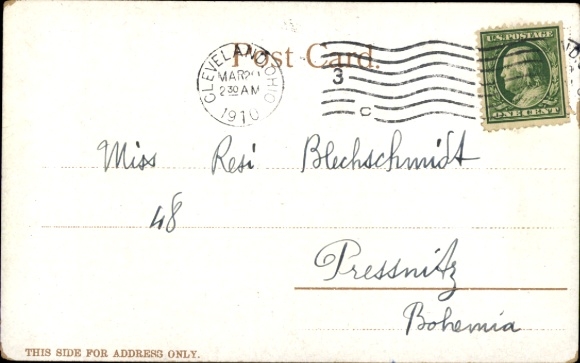 Post Card.
CLEVELAND, OHIO
MAR 29
2 30 AM
1910
3
C
U.S. POSTAGE
ONE CENT
Miss Resi Blechschmidt
48
Pressnitz
Bohemia
THIS SIDE FOR ADDRESS ONLY.